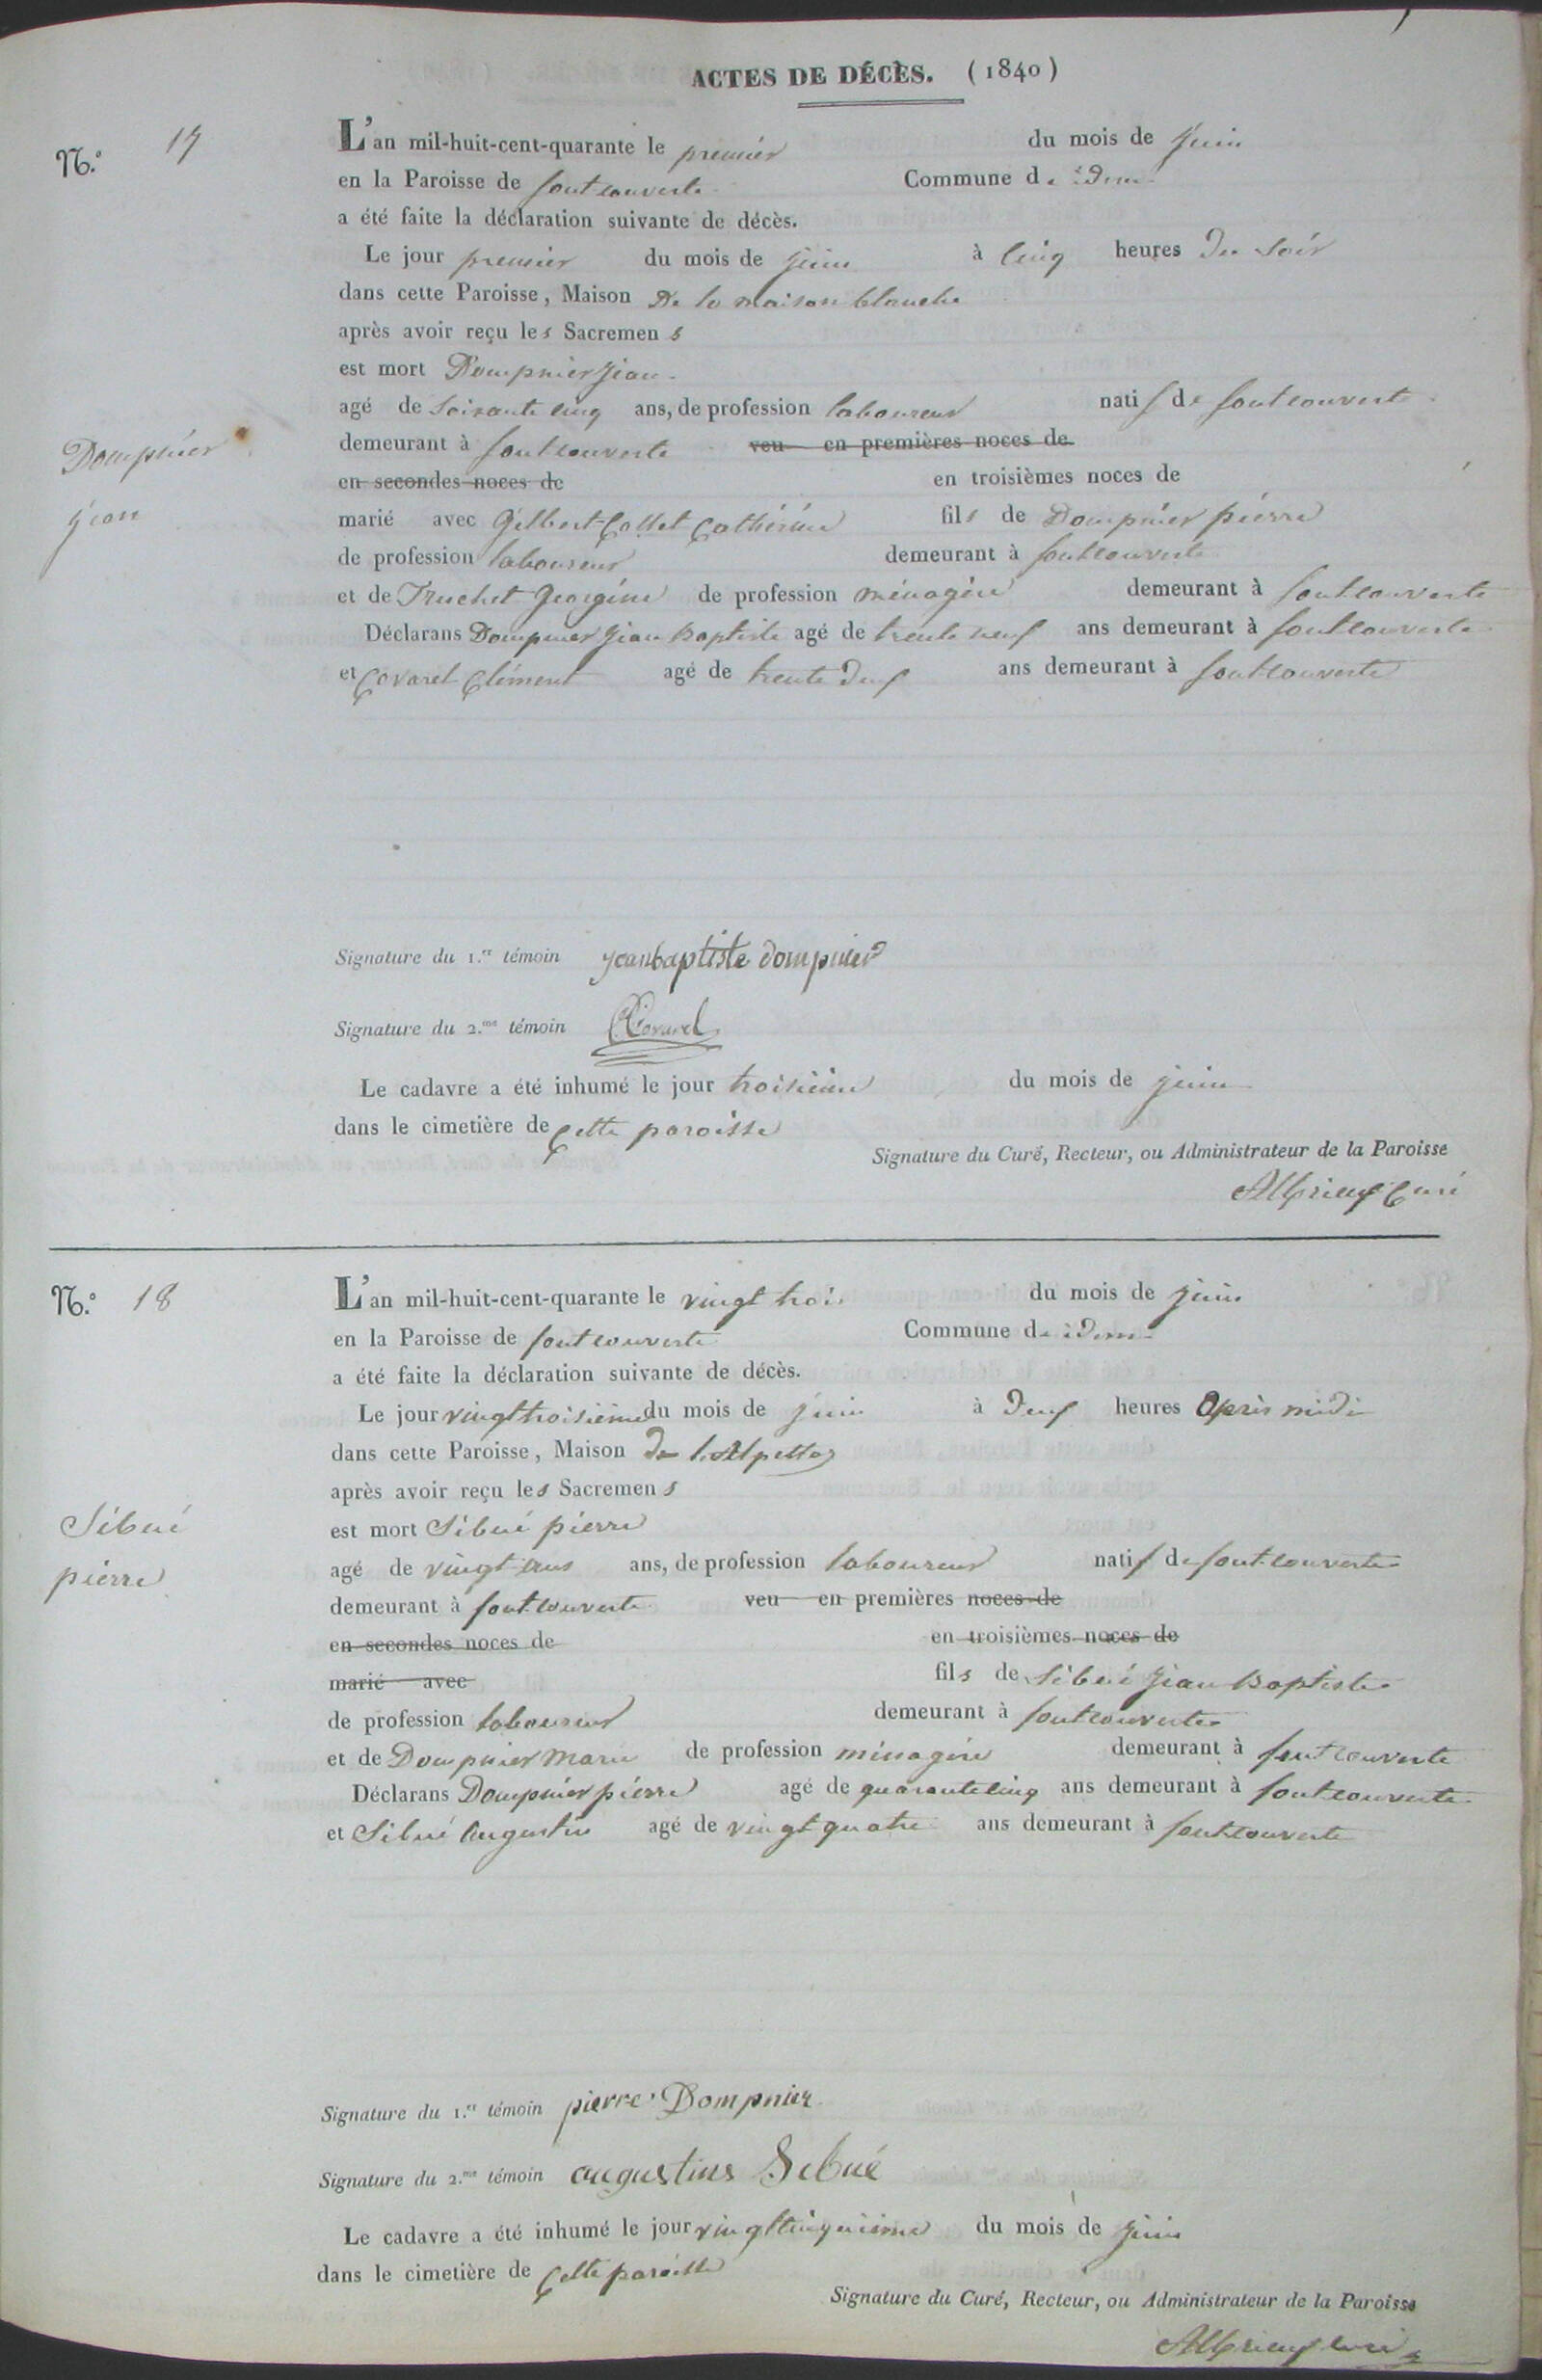 ACTES DE DÉCÈS. (1840)
N.° 17
L'an mil-huit-cent-quarante le premier du mois de juin
en la Paroisse de fontcouverte Commune de idem
a été faite la déclaration suivante de décès.
Le jour premier du mois de juin à cinq heures du soir
dans cette Paroisse, Maison De la maison blanche
après avoir reçu les Sacremens
est mort Dompnier jean
agé de soixante cinq ans, de profession laboureur natif de fontcouverte
demeurant à fontcouverte veu en premières noces de
en secondes noces de en troisièmes noces de
Dompnier
jean
marié avec Gilbert-Collet Catherine fils de Dompnier pierre
de profession laboureur demeurant à fontcouverte
et de Truchet Georgine de profession ménagère demeurant à fontcouverte
Déclarans Dompnier jean Baptiste agé de trente neuf ans demeurant à fontcouverte
et Covarel Clément agé de trente deux ans demeurant à fontcouverte
Signature du 1.er témoin jeanbaptiste dompnier
Signature du 2.me témoin Covarel
Le cadavre a été inhumé le jour troisième du mois de juin
dans le cimetière de cette paroisse
Signature du Curé, Recteur, ou Administrateur de la Paroisse
Curé
N.° 18
L'an mil-huit-cent-quarante le vingt trois du mois de juin
en la Paroisse de fontcouverte Commune de idem
a été faite la déclaration suivante de décès.
Le jour vingt troisième du mois de juin à deux heures Après midi
dans cette Paroisse, Maison de l'Alpettaz
après avoir reçu les Sacremens
Sibué
pierre
est mort Sibué pierre
agé de vingt ans ans, de profession laboureur natif de fontcouverte
demeurant à fontcouverte veu en premières noces de
en secondes noces de en troisièmes noces de
marié avec fils de Sibué jean Baptiste
de profession laboureur demeurant à fontcouverte
et de Dompnier Marie de profession ménagère demeurant à fontcouverte
Déclarans Dompnier pierre agé de quarante cinq ans demeurant à fontcouverte
et Sibué Augustin agé de vingt quatre ans demeurant à fontcouverte
Signature du 1.er témoin pierre Dompnier
Signature du 2.me témoin augustins Sibué
Le cadavre a été inhumé le jour vingt cinquième du mois de juin
dans le cimetière de cette paroisse
Signature du Curé, Recteur, ou Administrateur de la Paroisse
curé